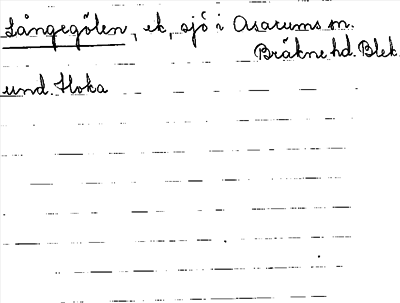 Långegölen, ek, sjö i Asarums sn.
Bräkne hd. Blek.
und. Hoka